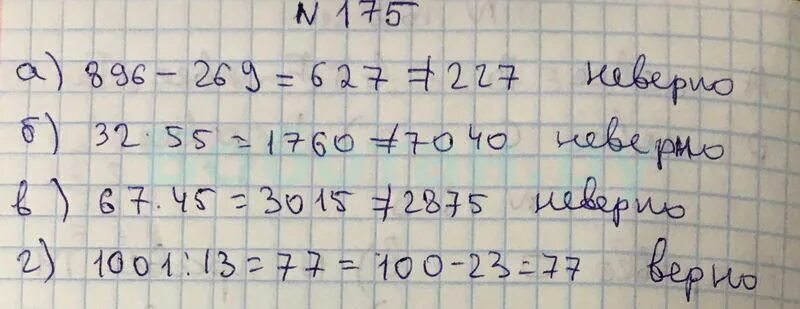 N 175
а) 896 - 269 = 627 ≠ 227 неверно
б) 32 · 55 = 1760 ≠ 7040 неверно
в) 67 · 45 = 3015 ≠ 2875 неверно
г) 1001 : 13 = 77 = 100 - 23 = 77 верно